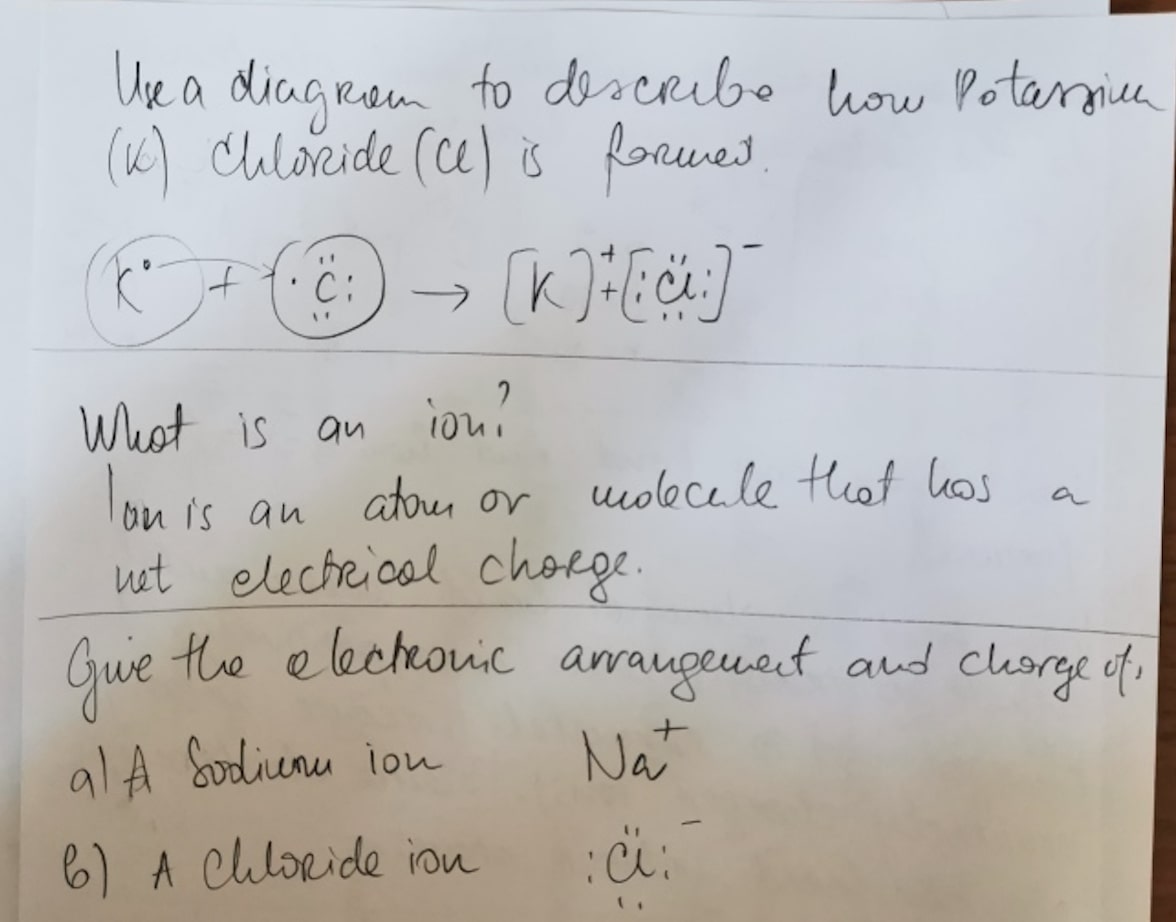 Use a diagram to describe how Potassium
(K) Chloride (Cl) is formed.
K• + ·C̈: → [K]⁺ + [:C̈l:]⁻
What is an ion?
Ion is an atom or molecule that has a
net electrical charge.
Give the electronic arrangement and charge of,
a) A Sodium ion Na⁺
b) A Chloride ion :C̈l:⁻